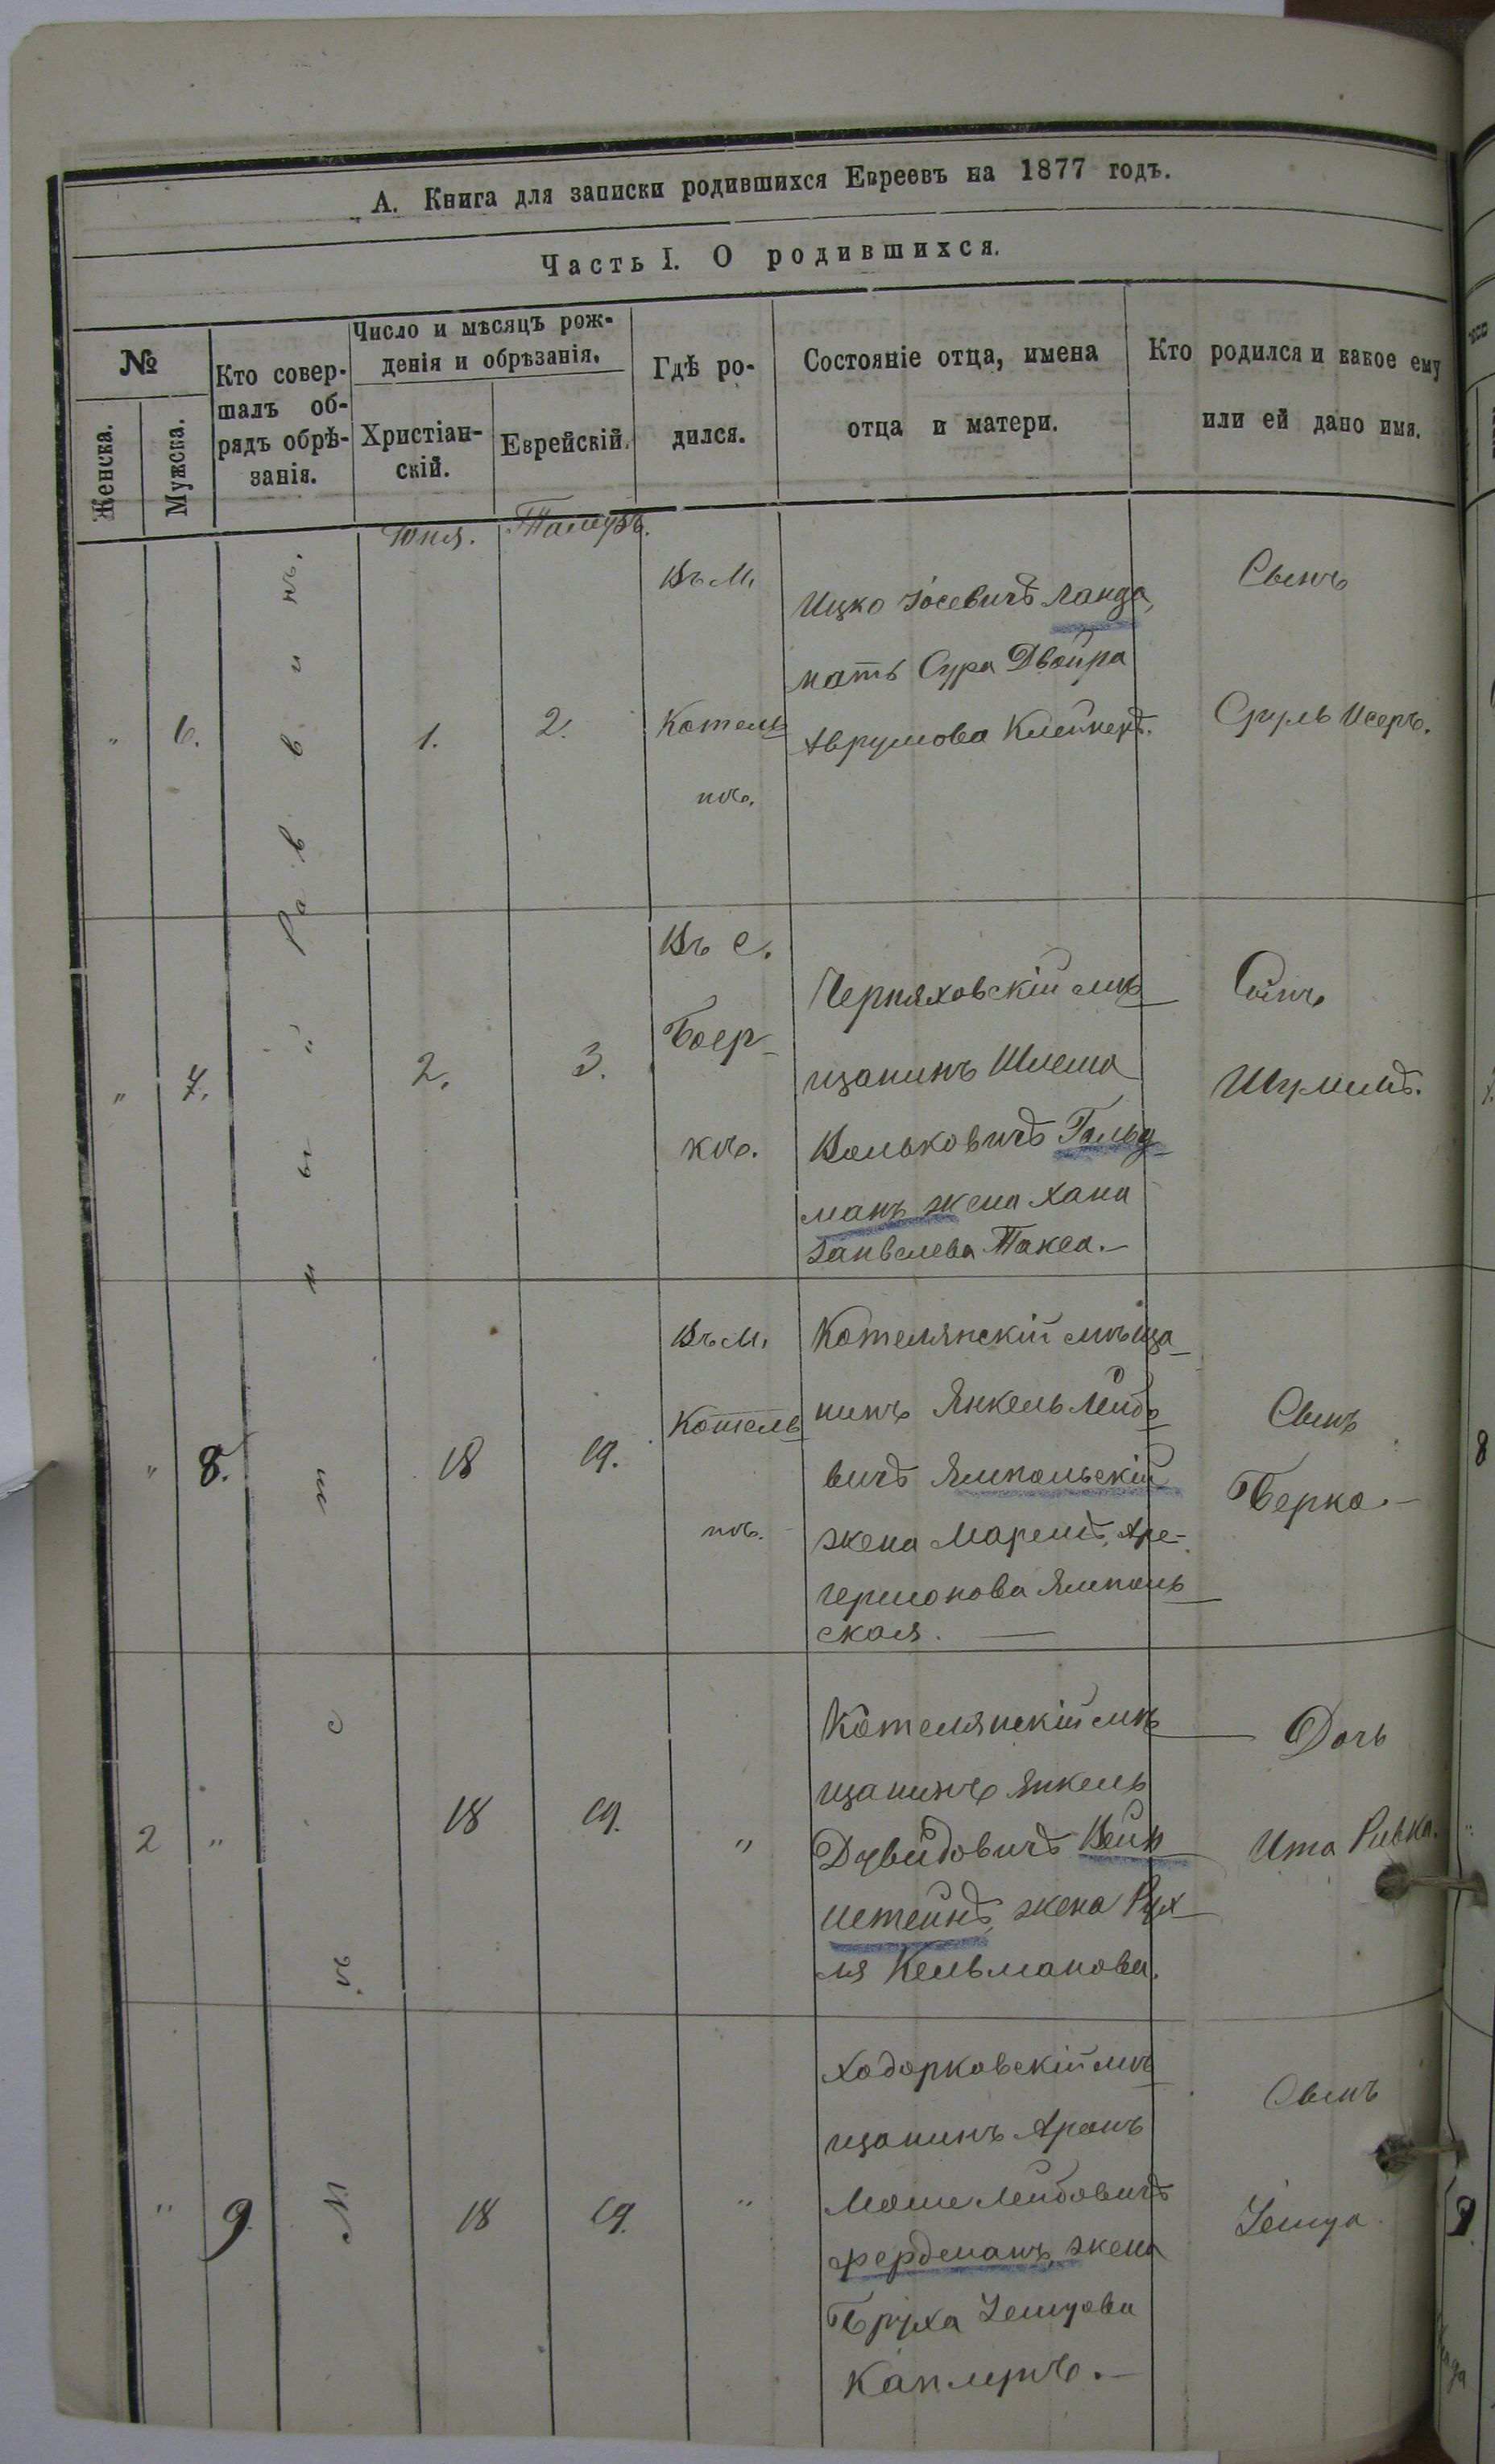 А. Книга для записки родившихся Евреевъ на 1877 годъ.
Часть I. О родившихся.
№
Женска.
Мужска.
Кто совер-
шалъ об-
рядъ обрѣ-
занія.
Число и мѣсяцъ рож-
денія и обрѣзанія.
Христіан-
скій.
Еврейскій.
Гдѣ ро-
дился.
Состояніе отца, имена
отца и матери.
Кто родился и какое ему
или ей дано имя.
Мѣстный Раввинъ.
Юня.
Тамузъ.
"
6.
1.
2.
Въ м.
Котель
нѣ.
Ицко Іосевичъ Ланда,
мать Сура Двойра
Аврумова Клейнеръ.
Сынъ
Сруль Исеръ.
"
7.
2.
3.
Въ с.
Боер-
кѣ.
Черняховскій мѣ
щанинъ Шлема
Вольковичъ Гольд
манъ жена Хана
Занвелева Такса.
Сынъ
Шулимъ.
"
8.
18
19.
Въ м.
Котель
нѣ.
Котелянскій мѣща
нинъ Янкель Лейбо
вичъ Ямпольскій
жена
Ямполь
ская.
Сынъ
Берко.
2
"
18
19.
"
Котелянскій мѣ
щанинъ Янкель
Дувидовичъ Вейн
штейнъ, жена Рух
ля Кельманова.
Дочь
Ита Ривка.
"
9.
18
19.
"
Ходорковскій мѣ
щанинъ Аронъ
Моше Лейбовичъ
Фердманъ, жена
Бруха
Каплунъ.
Сынъ